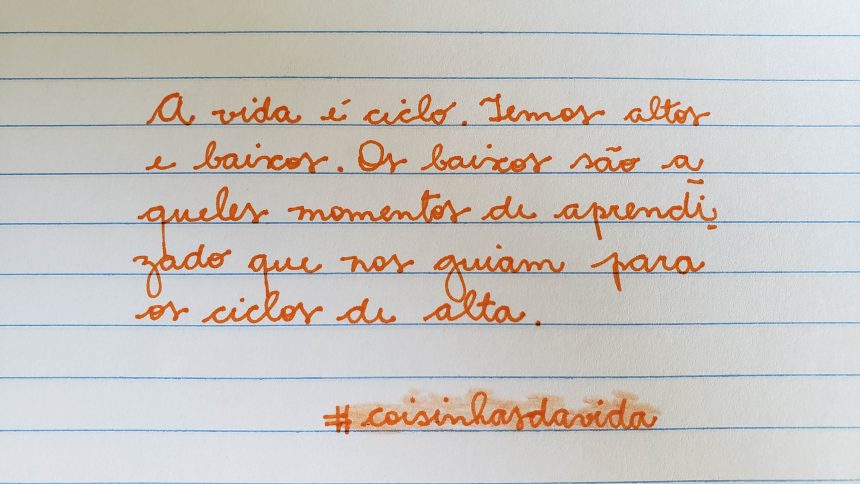 A vida é ciclo. Temos altos
e baixos. Os baixos são a
queles momentos de aprendi
zado que nos guiam para
os ciclos de alta.
#coisinhasdavida